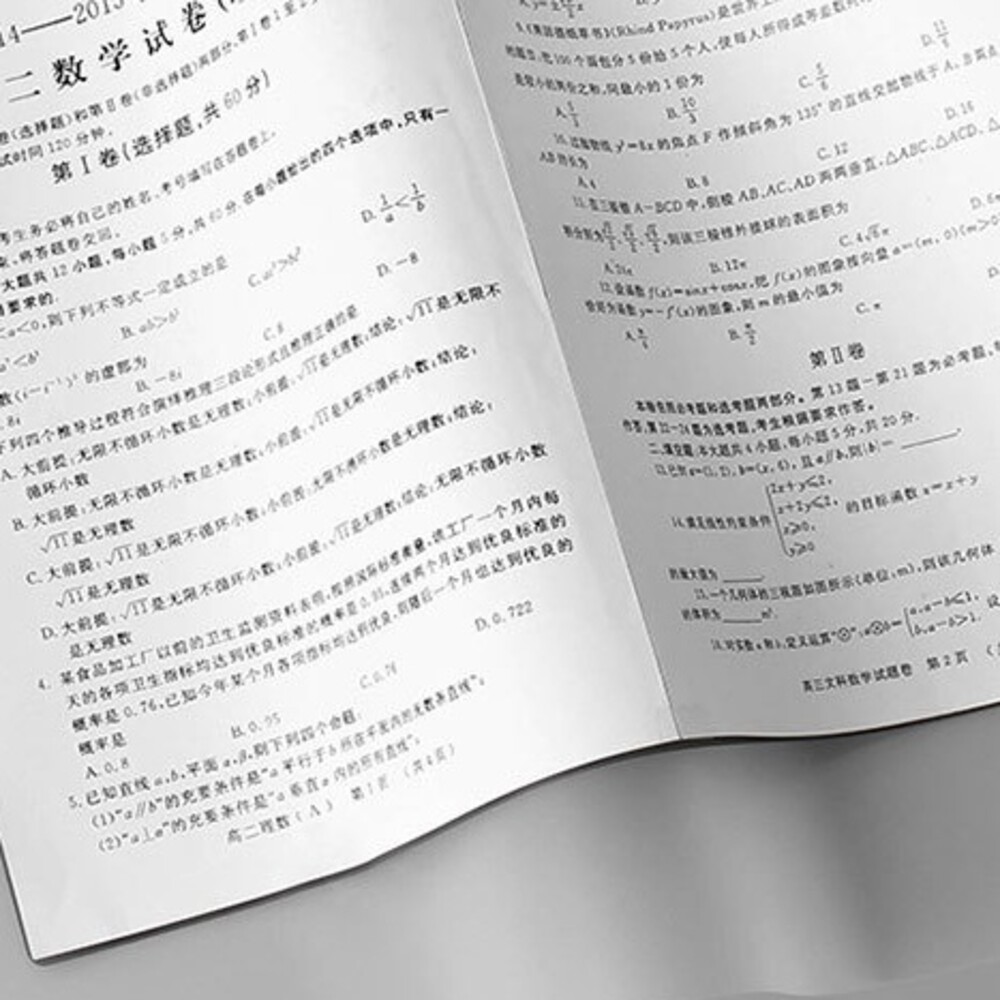 14——2015
二数学试卷
卷(选择题)和第Ⅱ卷(非选择题)两部分,第Ⅰ卷1至2
试时间120分钟.
第Ⅰ卷(选择题,共60分)
考生务必将自己的姓名、考号填写在答题卷上.
束,将答题卷交回.
大题共12小题,每小题5分,共60分.在每小题给出的四个选项中,只有一
要求的.
<a<0,则下列不等式一定成立的是
B. ab>b² C. D. 1/a<1/b
的虚部为
B. -8i C. 8 D. -8
下列四个推导过程符合演绎推理三段论形式且推理正确的是
A. 大前提:无限不循环小数是无理数;小前提:√11是无理数;结论:√11是无限不
循环小数
B. 大前提:无限不循环小数是无理数;小前提:√11是无限不循环小数;结论:
√11是无理数
C. 大前提:√11是无限不循环小数;小前提:无限不循环小数是无理数;结论:
√11是无理数
D. 大前提:√11是无限不循环小数;小前提:√11是无理数;结论:无限不循环小数
是无理数
4. 某食品加工厂以前的卫生监测资料表明,按照国际标准衡量,该工厂一个月内每
天的各项卫生指标均达到优良标准的概率是0.95,连续两个月达到优良标准的
概率是0.76,已知今年某个月各项指标均达到优良,则随后一个月也达到优良的
概率是
A. 0.8 B. 0.95 C. 0.76 D. 0.722
5. 已知直线a,b,平面α,β,则下列四个命题:
(1)“a∥b”的充要条件是“a平行于b所在平面内的无数条直线”;
(2)“a⊥α”的充要条件是“a垂直α内的所有直线”;
高二理数(A) 第1页 (共4页)
9.《莱因德纸草书》(Rhind Papyrus)是世界上
的题目:把100个面包分5份给5个人,使每人所得成等差数列
是较小的两份之和,问最小的1份为
B. 10/3 C. 5/6 D. 11/6
10. 过抛物线y²=8x的焦点F作倾斜角为135°的直线交抛物线于A,B两点
AB的长为
A. 4 B. 8 C. 12 D. 16
11. 在三棱锥A-BCD中,侧棱AB,AC,AD两两垂直,△ABC,△ACD,△
则该三棱锥外接球的表面积为
A. 2π B. 12π C. 4√6π D. 6π
12. 设函数f(x)=sinx+cosx,把f(x)的图象按向量a=(m,0)(m>0
恰好为函数y=-f′(x)的图象,则m的最小值为
B. π/2 C. π D.
第Ⅱ卷
本卷包括必考题和选考题两部分。第13题-第21题为必考题,每
作答,第22-24题为选考题,考生根据要求作答。
二.填空题:本大题共4小题,每小题5分,共20分.
13. 且a∥b,则|b|= ______.
14. 满足线性约束条件 { 2x+y≤3, x+2y≤3, x≥0, y≥0 的目标函数z=x+y
的最大值为 ______.
15. 一个几何体的三视图如图所示(单位:m),则该几何体
的体积为 ______m³.
16. 对实数a和b,定义运算“⊗”:a⊗b= { a,a-b≤1, b,a-b>1. 设
高三文科数学试题卷 第2页 (共